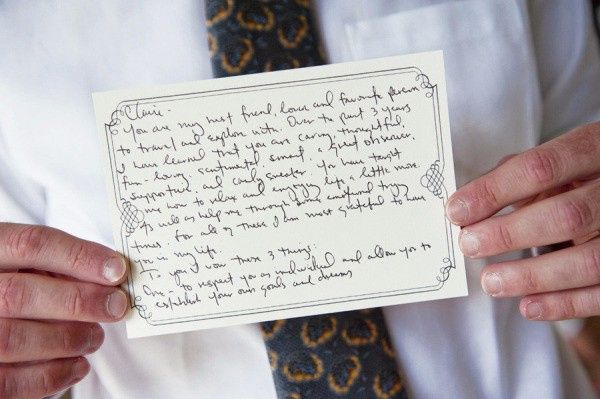 Claire -
You are my best friend, lover and favorite person
to travel and explore with. Over the past 3 years
I have learned that you are caring, thoughtful,
fun-loving, sentimental, smart, a great observer,
supportive and cool sneaker. You have taught
me how to relax and enjoy life a little more.
as well as help me through some emotional trying
times. For all of these I am most grateful to have
you in my life.
To you I vow these 3 things:
One, to respect you as individual and allow you to
establish your own goals and dreams